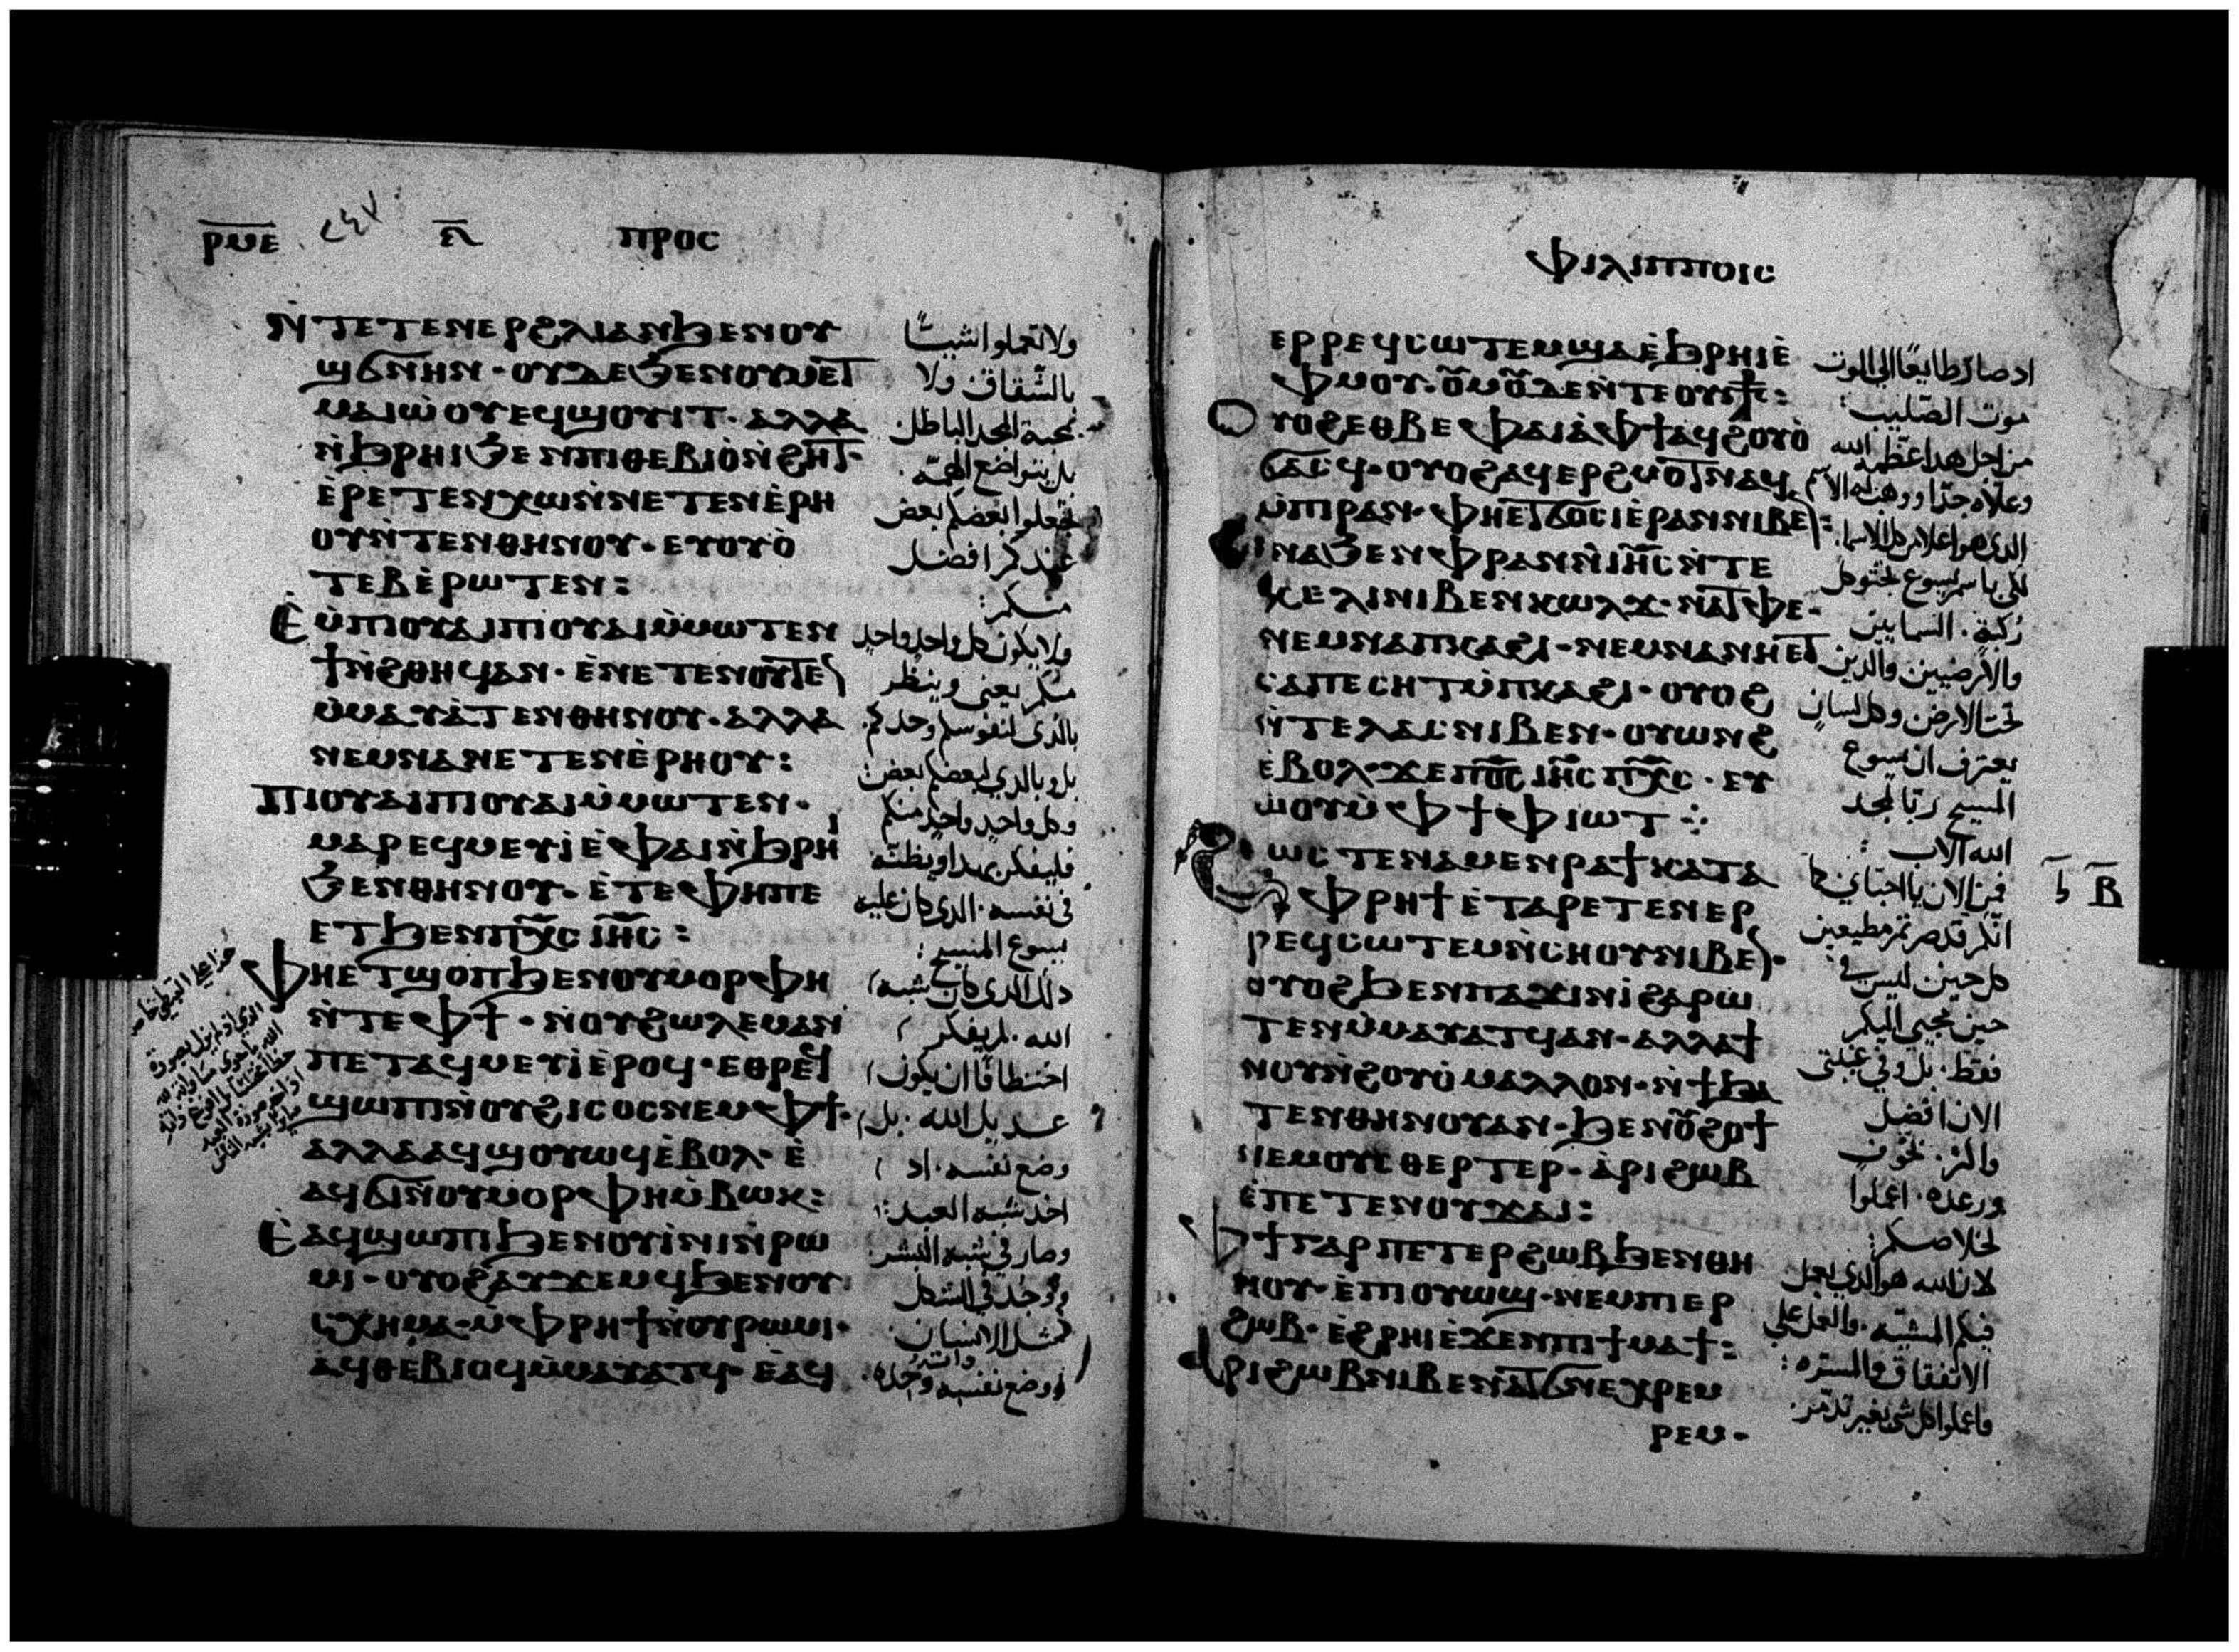 ⲣⲙⲉ ⲡⲣⲟⲥ
ⲛ̀ⲧⲉⲧⲉⲛⲉⲣϩⲗⲓⲁⲛϧⲉⲛⲟⲩ
ϣϭⲛⲏⲛ · ⲟⲩⲇⲉϧⲉⲛⲟⲩⲙⲉⲧ
ⲙⲁⲓⲱ̀ⲟⲩⲉϥϣⲟⲩⲓⲧ · ⲁⲗⲗⲁ
ⲛ̀ϧⲣⲏⲓϧⲉⲛⲡⲓⲑⲉⲃⲓⲟ̀ⲛ̀ϩⲏⲧ ·
ⲉ̀ⲣⲉⲧⲉⲛⲭⲱⲛ̀ⲛⲉⲧⲉⲛⲉ̀ⲣⲏ
ⲟⲩⲛ̀ⲧⲉⲛⲑⲏⲛⲟⲩ · ⲉⲩⲟⲩⲟ̀
ⲧⲉⲃⲉ̀ⲣⲱⲧⲉⲛ :
ⲉ̀ⲙ̀ⲡⲓⲟⲩⲁⲓⲡⲓⲟⲩⲁⲓⲙ̀ⲙⲱⲧⲉⲛ
ϯⲛ̀ϩⲑⲏϥⲁⲛ · ⲉ̀ⲛⲉⲧⲉⲛⲟⲩⲧⲉ
ⲙ̀ⲙⲁⲩⲁ̀ⲧⲉⲛⲑⲏⲛⲟⲩ · ⲁⲗⲗⲁ
ⲛⲉⲙⲛⲁⲛⲉⲧⲉⲛⲉ̀ⲣⲏⲟⲩ :
ⲡⲓⲟⲩⲁⲓⲡⲓⲟⲩⲁⲓⲙ̀ⲙⲱⲧⲉⲛ ·
ⲙⲁⲣⲉϥⲙⲉⲩⲓ̀ⲉ̀ⲫⲁⲓⲛ̀ϧⲣⲏⲓ
ϧⲉⲛⲑⲏⲛⲟⲩ · ⲉ̀ⲧⲉⲫⲏⲡⲉ
ⲉⲧϧⲉⲛⲡⲭ̅ⲥ̅ ⲓⲏ̅ⲥ̅ :
ⲫⲏⲉⲧϣⲟⲡϧⲉⲛⲟⲩⲙⲟⲣⲫⲏ
ⲛ̀ⲧⲉⲫϯ · ⲛ̀ⲟⲩϩⲱⲗⲉⲙⲁⲛ
ⲡⲉⲧⲁϥⲙⲉⲩⲓ̀ⲉ̀ⲣⲟϥ · ⲉⲑⲣⲉϥ
ϣⲱⲡⲓⲛ̀ⲟⲩϩⲓⲥⲟⲥⲛⲉⲙⲫϯ ·
ⲁⲗⲗⲁⲁϥϣⲟⲩⲱϥⲉ̀ⲃⲟⲗ · ⲉ̀
ⲁϥϭⲓⲛ̀ⲟⲩⲙⲟⲣⲫⲏⲙ̀ⲃⲱⲕ :
ⲉ̀ⲁϥϣⲱⲡⲓϧⲉⲛⲟⲩⲓ̀ⲛⲓⲛ̀ⲣⲱ
ⲙⲓ · ⲟⲩⲟϩⲁⲩϫⲉⲙϥϧⲉⲛⲟⲩ
ⲥⲭⲏⲙⲁ · ⲙ̀ⲫⲣⲏϯⲛ̀ⲟⲩⲣⲱⲙⲓ ·
ⲁϥⲑⲉⲃⲓⲟϥⲙ̀ⲙⲁⲩⲁⲧϥ · ⲉⲁϥ
ولا تعملوا شيـًا
بالشقاق ولا
بمحبة المجد الباطل
بل بتواضع الهمّة
تجعلوا بعضكم بعض
عندكم افضل
منكم :
ولا يكون كل واحد واحد
منكم يعنى وينظر
بالذي لنفوسكم وحدكم
بل وبالذي لبعضكم بعض
وكل واحد واحد منكم
فليفكر بهذا ويظنّه
في نفسه · الذي كان عليه
يسوع المسيح :
ذلك الذي كان شبه
الله · لم يفكر
اختطافًا ان يكون
عديل الله · بل
وضع نفسه · اذ
اخذ شبه العبد :
وصار في شبه البشر
ووُجد في الشكل
كمثل الانسان
ووضع نفسه وحده ·
ⲫⲓⲗⲓⲡⲡⲟⲓⲥ
ⲉⲣⲣⲉϥⲥⲱⲧⲉⲙϣⲁⲉ̀ϧⲣⲏⲓⲉ̀
ⲫⲙⲟⲩ · ⲟⲩⲙⲟⲩⲇⲉⲛ̀ⲧⲉⲟⲩⲥ⳨ :
ⲟⲩⲟϩⲉⲑⲃⲉⲫⲁⲓⲁ̀ⲫϯⲁϥϩⲟⲩⲟ̀
ϭⲁⲥϥ · ⲟⲩⲟϩⲁϥⲉⲣϩⲙⲟⲧⲛⲁϥ
ⲙ̀ⲡⲓⲣⲁⲛ · ⲫⲏⲉⲧϭⲟⲥⲓⲉ̀ⲣⲁⲛⲛⲓⲃⲉⲛ :
ϩⲓⲛⲁϧⲉⲛⲫⲣⲁⲛⲛ̀ⲓⲏ̅ⲥ̅ⲛ̀ⲧⲉ
ⲕⲉⲗⲓⲛⲓⲃⲉⲛⲕⲱⲗϫ · ⲛⲁⲧⲫⲉ ·
ⲛⲉⲙⲛⲁⲡⲕⲁϩⲓ · ⲛⲉⲙⲛⲁⲛⲏⲉⲧ
ⲥⲁⲡⲉⲥⲏⲧⲙ̀ⲡⲕⲁϩⲓ · ⲟⲩⲟϩ
ⲛ̀ⲧⲉⲗⲁⲥⲛⲓⲃⲉⲛ · ⲟⲩⲱⲛϩ
ⲉ̀ⲃⲟⲗ · ϫⲉⲡ⳪ ⲓⲏ̅ⲥ̅ ⲡⲭ̅ⲥ̅ · ⲉⲩ
ⲱ̀ⲟⲩⲙ̀ⲫϯⲫⲓⲱⲧ ⁘
ϩⲱⲥⲧⲉⲛⲁⲙⲉⲛⲣⲁϯⲕⲁⲧⲁ
ⲫⲣⲏϯⲉ̀ⲧⲁⲣⲉⲧⲉⲛⲉⲣ
ⲣⲉϥⲥⲱⲧⲉⲙⲛ̀ⲥⲏⲟⲩⲛⲓⲃⲉⲛ ·
ⲟⲩⲟϩϧⲉⲛⲡⲁϫⲓⲛⲓ̀ϩⲁⲣⲱ
ⲧⲉⲛⲙ̀ⲙⲁⲩⲁⲧϥⲁⲛ · ⲁⲗⲗⲁϯ
ⲛⲟⲩⲛ̀ϩⲟⲩⲟ̀ⲙⲁⲗⲗⲟⲛ · ⲛ̀ϯϧⲁ
ⲧⲉⲛⲑⲏⲛⲟⲩⲁⲛ · ϧⲉⲛⲟⲩϩⲟϯ
ⲛⲉⲙⲟⲩⲥⲑⲉⲣⲧⲉⲣ · ⲁ̀ⲣⲓϩⲱⲃ
ⲉ̀ⲡⲉⲧⲉⲛⲟⲩϫⲁⲓ :
ⲫϯⲅⲁⲣⲡⲉⲧⲉⲣϩⲱⲃϧⲉⲛⲑⲏ
ⲛⲟⲩ · ⲉ̀ⲡⲓⲟⲩⲱϣ · ⲛⲉⲙⲡⲓⲉⲣ
ϩⲱⲃ · ⲉ̀ϩⲣⲏⲓⲉ̀ϫⲉⲛⲡⲓϯⲙⲁϯ :
ⲁⲣⲓϩⲱⲃⲛⲓⲃⲉⲛⲁⲧϭⲛⲉⲭⲣⲉⲙ
ⲣⲉⲙ ·
اذ صار طايعًا الى الموت
موت الصليب :
من اجل هذا عظمه الله
وعلاه جدًا ووهب له الاسم
الذي هو اعلا من كل الاسما
لكي باسم يسوع تجثو كل
ركبة · السمايين
والارضيين والذين
تحت الارض وكل لسان
يعترف ان يسوع
المسيح ربًا لمجد
الله الآب :
فمن الان يا احباي كما
انكم قد صرتم مطيعين
كل حين ليس في
حين مجيي اليكم
فقط · بل وفي غيبتي
الان افضل
واكثر · بخوف
ورعدة · اعملوا
لخلاصكم :
لان الله هو الذي يعمل
فيكم المشيّة · والعمل على
الاتفاق والمسرّه :
واعملوا كل شي بغير تذمّر ·
ⲃ